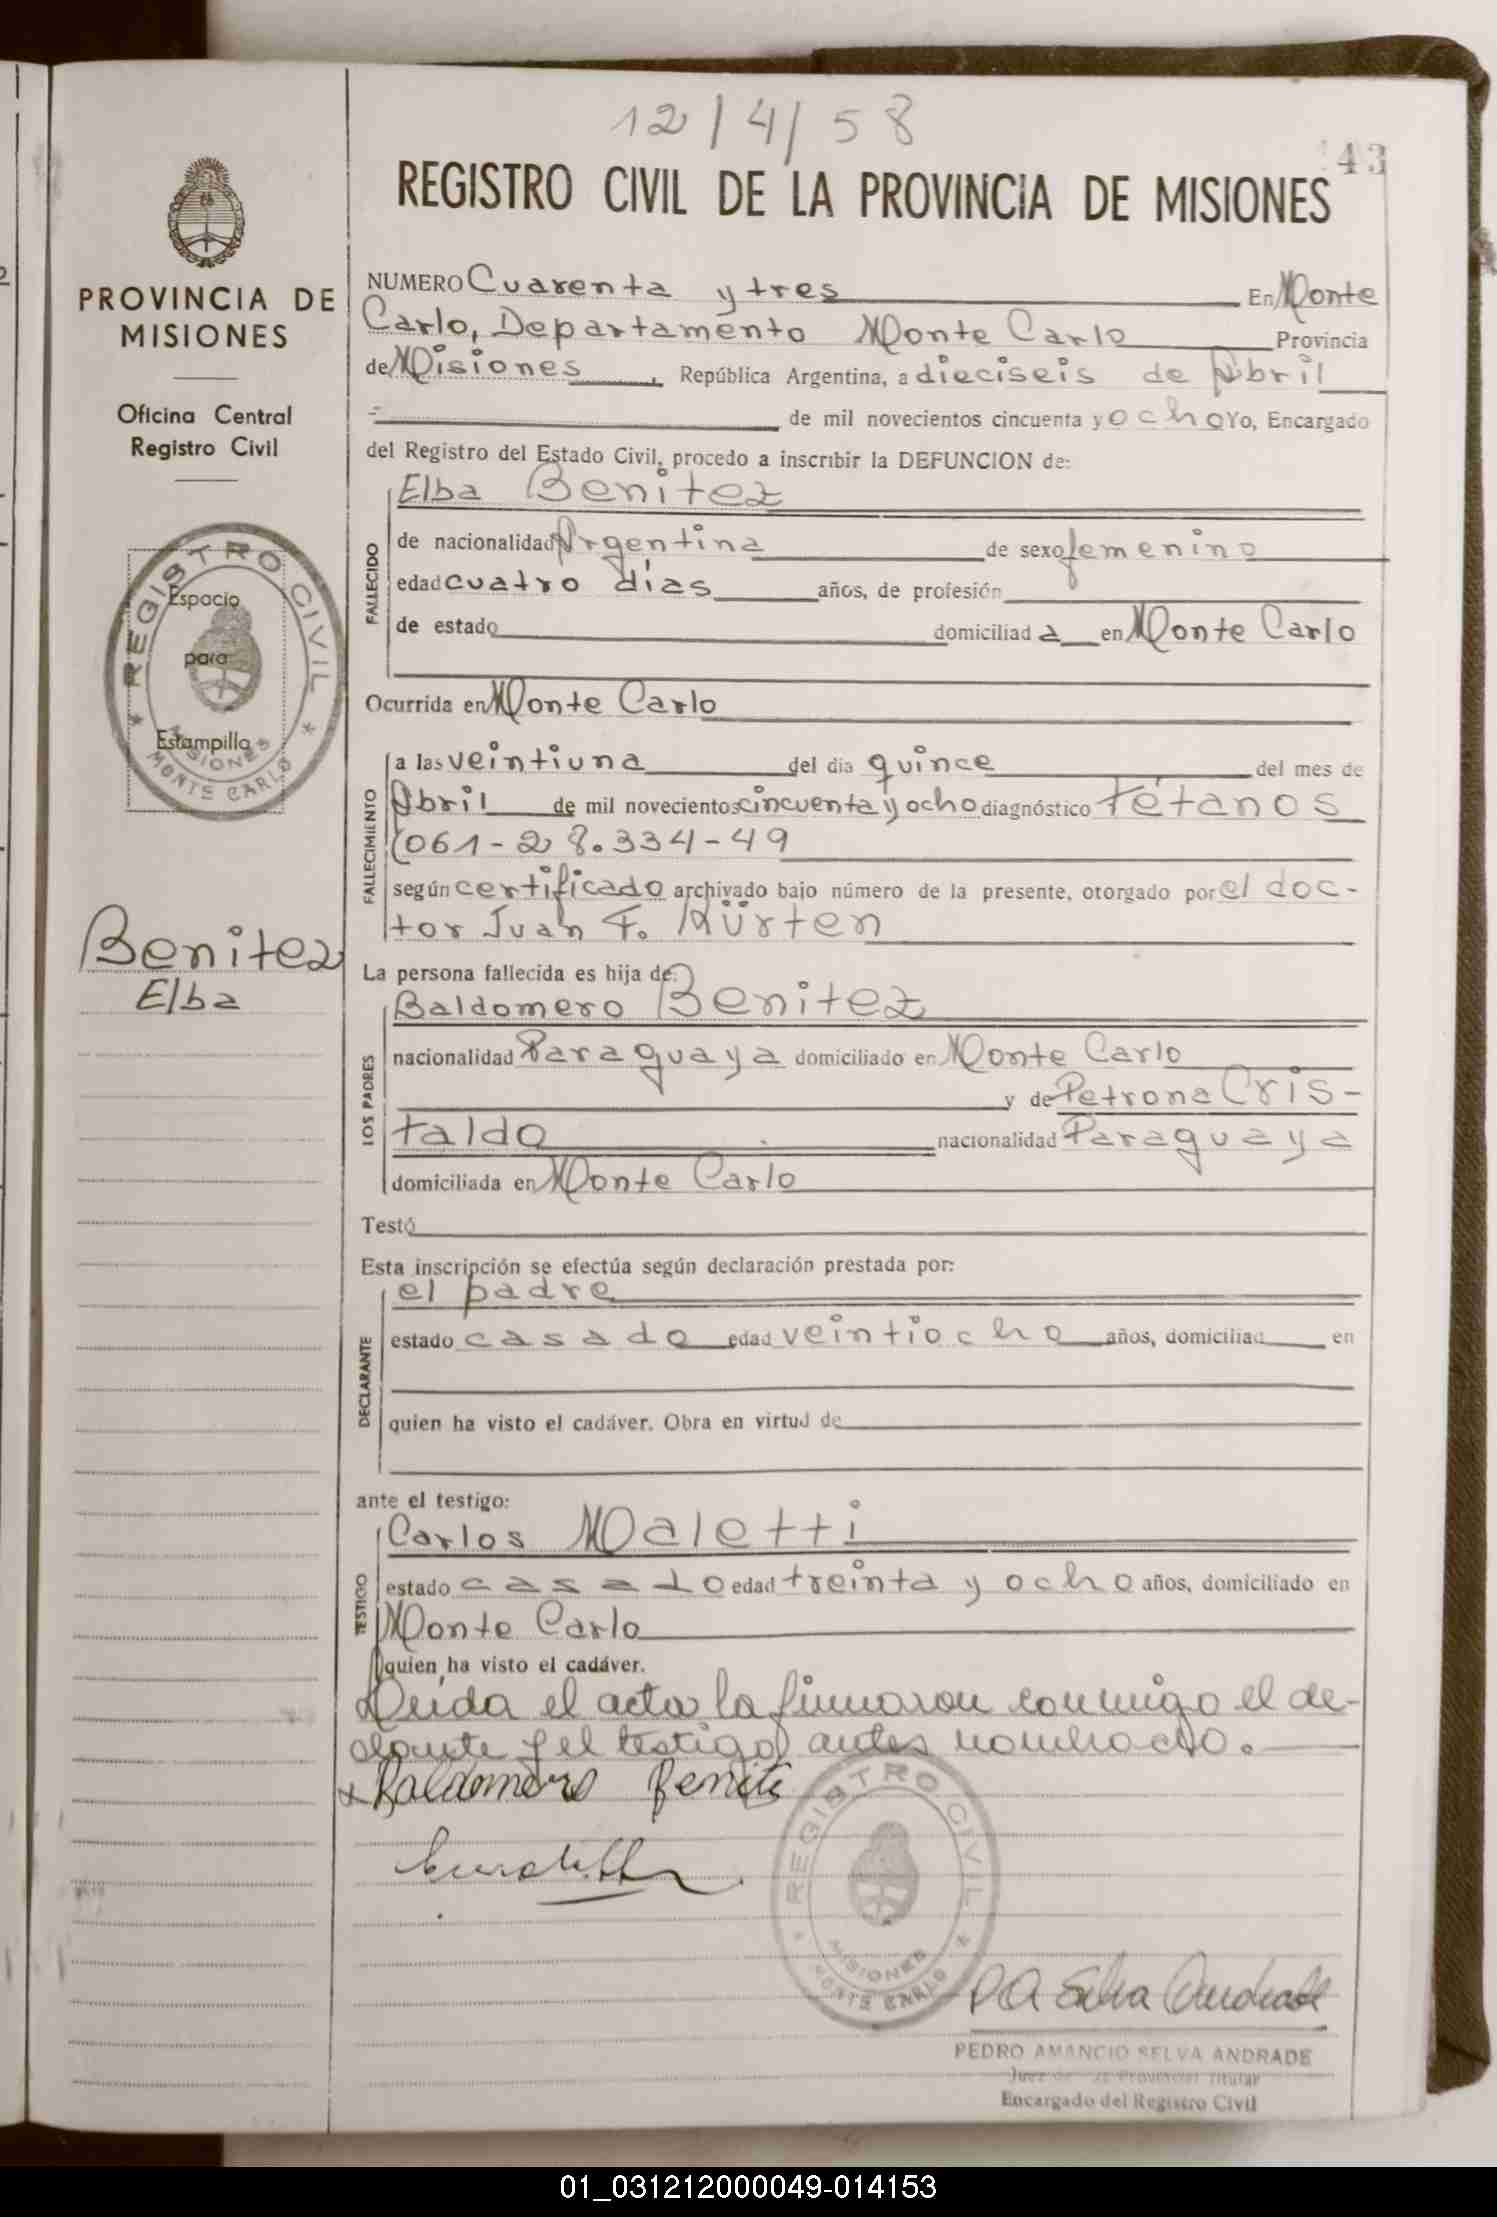 12/4/58
43
REGISTRO CIVIL DE LA PROVINCIA DE MISIONES
PROVINCIA DE
MISIONES
Oficina Central
Registro Civil
REGISTRO CIVIL
Espacio
para
Estampilla
MISIONES
MONTE CARLO
Benitez
Elba
NUMERO Cuarenta y tres En Monte
Carlo, Departamento Monte Carlo Provincia
de Misiones, República Argentina, a dieciseis de Abril
de mil novecientos cincuenta y ocho Yo, Encargado
del Registro del Estado Civil, procedo a inscribir la DEFUNCION de:
FALLECIDO
Elba Benitez
de nacionalidad Argentina de sexo femenino
edad cuatro días años, de profesión
de estado domiciliad a en Monte Carlo
Ocurrida en Monte Carlo
FALLECIMIENTO
a las veintiuna del dia quince del mes de
Abril de mil novecientos cincuenta y ocho diagnóstico Tétanos
(061-28.334-49
según certificado archivado bajo número de la presente, otorgado por el doc-
tor Juan F. Kürten
La persona fallecida es hija de:
LOS PADRES
Baldomero Benitez
nacionalidad Paraguaya domiciliado en Monte Carlo
y de Petrona Cris-
taldo nacionalidad Paraguaya
domiciliada en Monte Carlo
Testó
Esta inscripción se efectúa según declaración prestada por:
DECLARANTE
el padre
estado casado edad veintiocho años, domiciliad en
quien ha visto el cadáver. Obra en virtud de
ante el testigo:
TESTIGO
Carlos Maletti
estado casado edad treinta y ocho años, domiciliado en
Monte Carlo
quien ha visto el cadáver.
Leída el acta la firmaron conmigo el de-
clarante y el testigo antes nombrado.
x Baldomero Benites
REGISTRO CIVIL
MISIONES
MONTE CARLO
P A Selva Andrade
PEDRO AMANCIO SELVA ANDRADE
Juez de Paz Provincial Titular
Encargado del Registro Civil
01_031212000049-014153